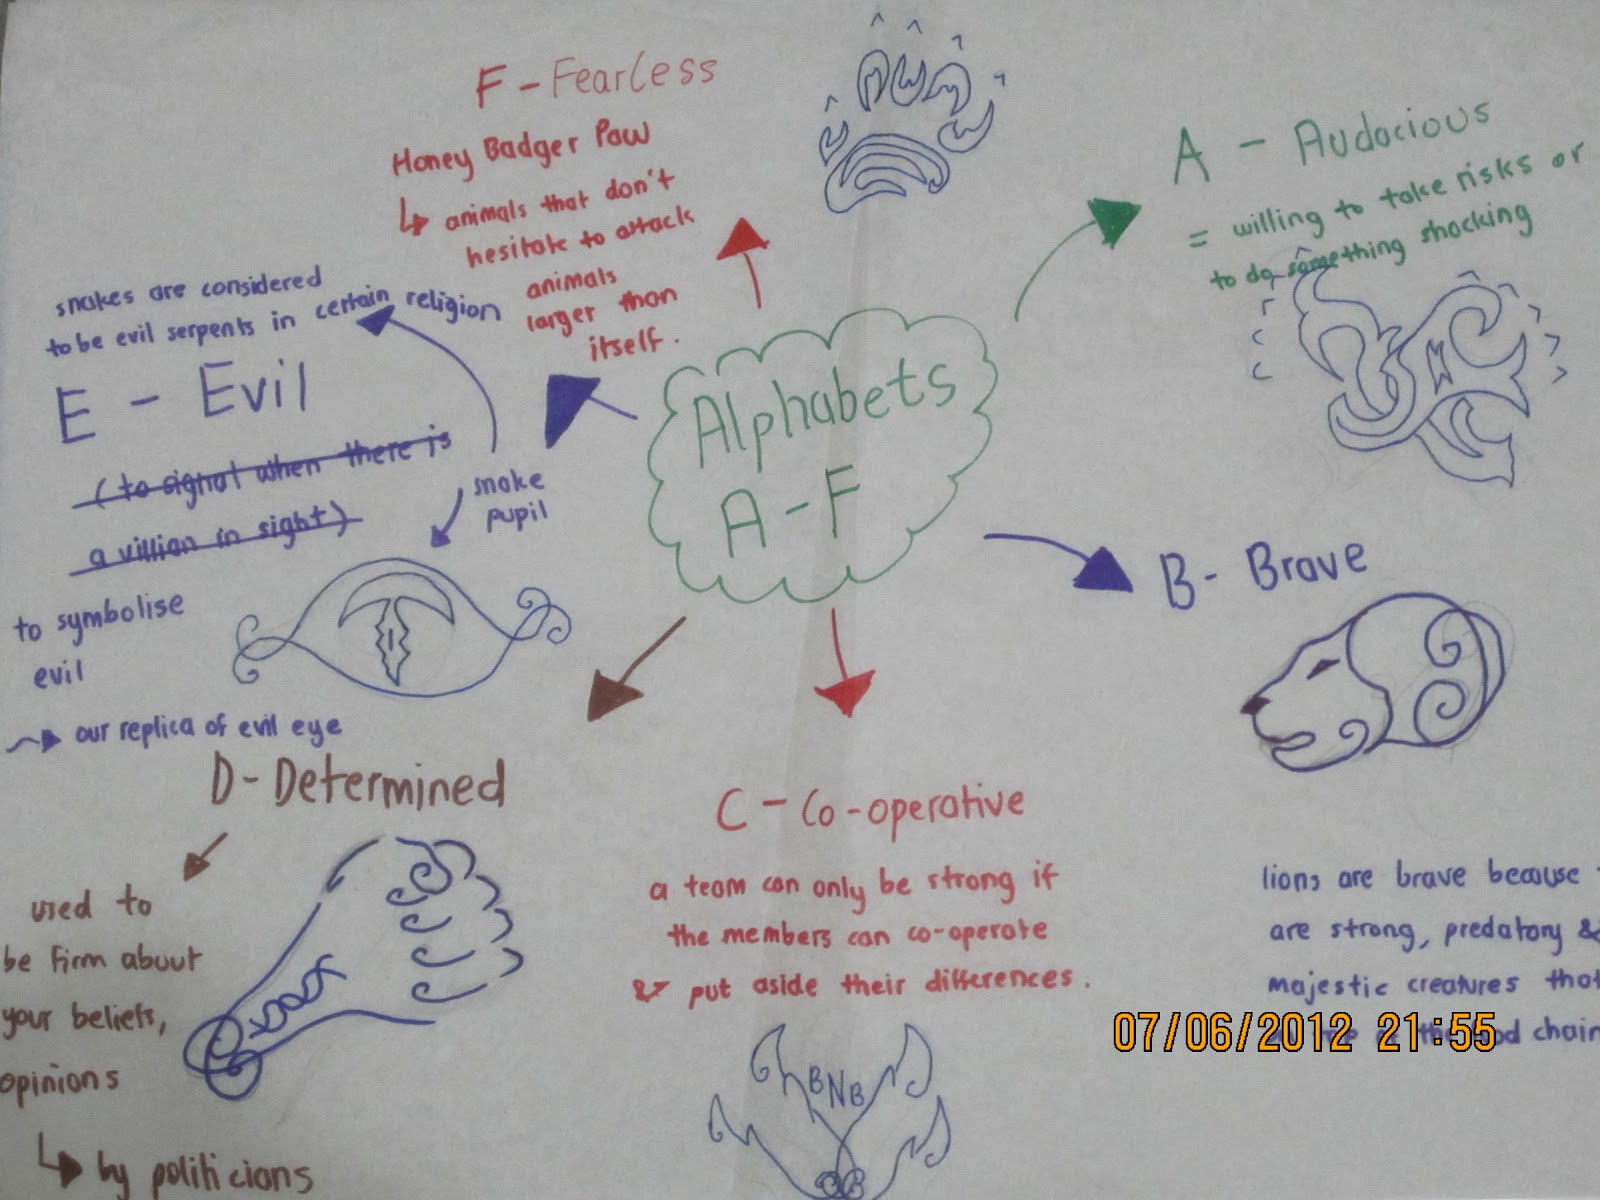 Alphabets
A - F
A - Audacious
= willing to take risks or
to do something shocking
B - Brave
lions are brave because
are strong, predatory &
majestic creatures that
food chain
C - Co-operative
a team can only be strong if
the members can co-operate
& put aside their differences.
BNB
D - Determined
used to
be firm about
your beliefs,
opinions
by politicians
snakes are considered
to be evil serpents in certain religion
E - Evil
(to signal when there is
a villian in sight)
snake
pupil
to symbolise
evil
our replica of evil eye
F - Fearless
Honey Badger Paw
animals that don't
hesitate to attack
animals
larger than
itself.
07/06/2012 21:55